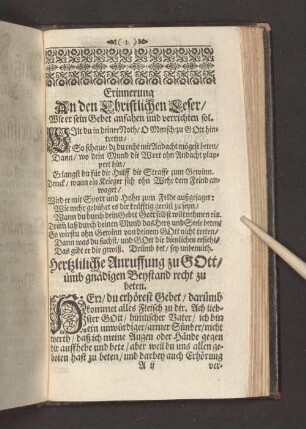 ( 1. )
Erinnerung
An den Christlichen Leser /
Wie er sein Gebet anfahen und verrichten sol.
WIlt du in deiner Noth / O Mensch zu GOtt hin-
treten /
So schaue / dz du recht mit Andacht mögest beten /
Dann / wo dein Mund die Wort ohn Andacht plap-
pert hin /
Erlangst du für die Hülff die Straffe zum Gewinn.
Denck / wann ein Krieger sich ohn Wehr dem Feind an-
waget /
Wird er mit Spott und Hohn zum Felde außgejaget:
Wie mehr gebühret es dir kräfftig gerüst zu seyn /
Wann du durch dein Gebet Gott selbst wilt nehmen ein.
Drüm laß durch deinen Mund das Hertz und Seele beten /
So wirstu ohn Gewinn von deinem GOtt nicht treten /
Dann was du suchst / und GOtt die dienlichen erkieß /
Das gibt er dir gewiß. Drümb bet / sey unvernieß.
Hertzliche Anruffung zu GOtt /
umb gnädigen Beystand recht zu
beten.
HErr / du erhörest Gebet / darümb
kommet alles Fleisch zu dir. Ach lieb-
ster GOtt / himlischer Vater / ich bin
ein unwürdiger / armer Sünder / nicht
werth / daß ich meine Augen oder Hände gegen
dir auffhebe und bete / aber weil du uns allen ge-
boten hast zu beten / und darbey auch Erhörung
A ij ver-